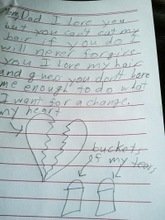 Dad I love you
but you can't cut my
hair if you do I
will never forgive
you I love my hair
and guess you don't love
me enough to do what
I want for a change.
my heart
buckets
of my tears